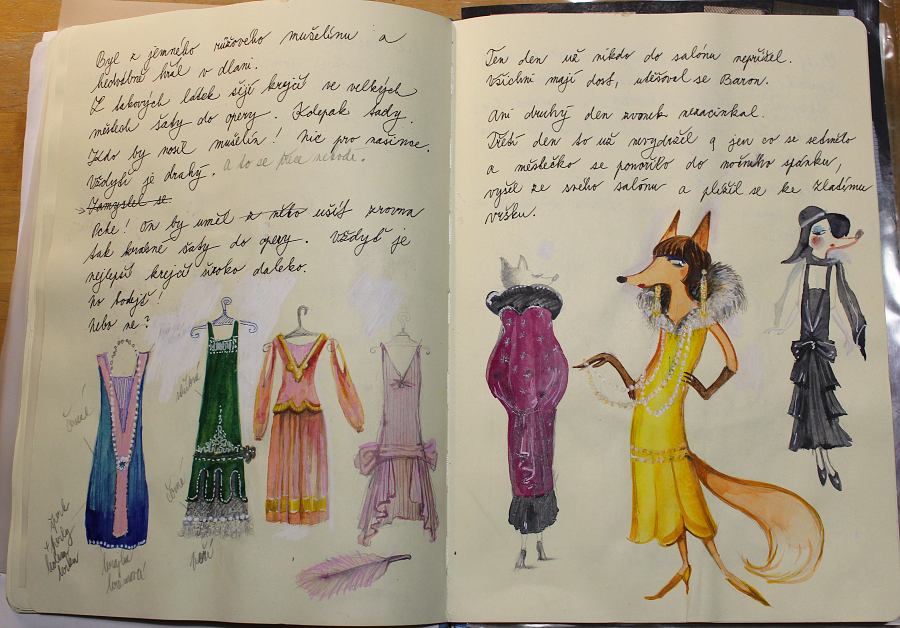 Byl z jemného růžového mušelínu a
hedvábně hřál v dlani.
Z takových látek šijí krejčí ve velkých
městech šaty do opery. Kdepak tady.
Kdo by nosil mušelín! Nic pro našince.
Vždyť je drahý. a to se přece nehodí.
Zamyslel se.
Pche! On by uměl z něho ušít zrovna
tak krásné šaty do opery. Vždyť je
nejlepší krejčí široko daleko.
No tedyť!
Nebo ne?
černé
stříbrné
černé
peří
Ten den už nikdo do salónu nepřišel.
Všichni mají dost, utěšoval se Baron.
Ani druhý den zvonek nezacinkal.
Třetí den to už nevydržel a jen co se setmělo
a městečko se ponořilo do nočního spánku,
vyšel ze svého salónu a plížil se ke Zlatému
vršku.